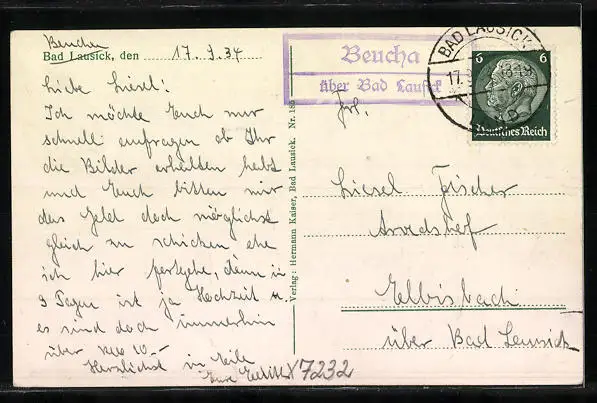 Beucha
Bad Lausick, den 17.9.34
Liebe Liesel!
Ich möchte Euch nur
schnell anfragen ob Ihr
die Bilder erhalten habt
und Euch bitten mir
das Geld doch möglichst
gleich zu schicken ehe
ich hier fortgehe, denn in
9 Tagen ist ja Hochzeit u
es sind doch immerhin
über 10.-
Herzlichst in Eile
Eure
17232
Verlag: Hermann Kaiser, Bad Lausick. Nr. 186
Beucha
über Bad Lausick
BAD LAUSICK
17.9.
6 6
Deutsches Reich
Frl.
Liesel Fischer
Arvedshof
Elbisbach
über Bad Lausick